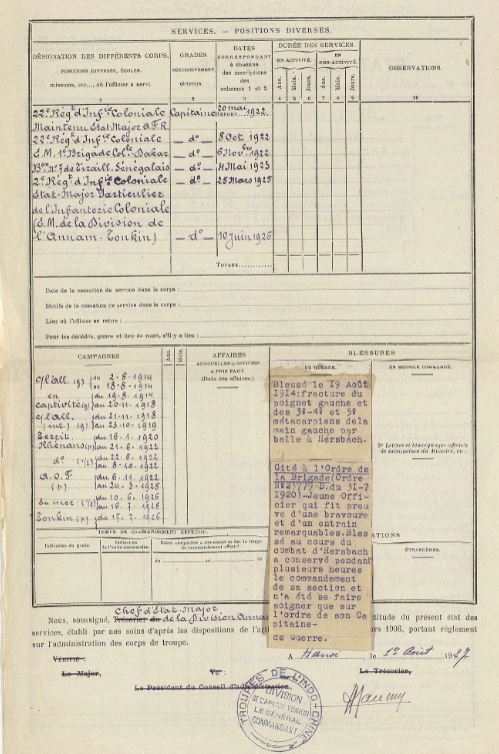 SERVICES. — POSITIONS DIVERSES.
DÉSIGNATION DES DIFFÉRENTS CORPS,
POSITIONS DIVERSES, ÉCOLES,
missions, etc., où l'officier a servi.
GRADES
successivement
obtenus.
DATES
CORRESPONDANT
à chacune
des inscriptions
des colonnes 1 et 2.
DURÉE DES SERVICES
EN ACTIVITÉ.
EN NON-ACTIVITÉ.
Ans. Mois. Jours. Ans. Mois. Jours.
OBSERVATIONS.
1 2 3 4 5 6 7 8 9 10
22e Régt d'Infie Coloniale Capitaine 20 mai 1922
Maintenu Etat Major A.F.R.
22e Régt d'Infie Coloniale — do — 8 Oct 1922
E.M. 1e Brigade Cole Dakar — do — 6 Novbre 1922
Bon No 7 de Tiraill. Sénégalais — do — 4 Mai 1923
2e Régt d'Infie Coloniale — do — 25 Mars 1925
Etat-Major Particulier
de l'Infanterie Coloniale
(E.M. de la Division de
l'Annam-Tonkin) — do — 10 Juin 1926
TOTAUX
Date de la cessation de service dans le corps :
Motifs de la cessation de service dans le corps :
Lieu où l'officier se retire :
Pour les décédés, genre et lieu de mort, s'il y a lieu :
CAMPAGNES
Ans. Mois.
AFFAIRES
AUXQUELLES L'OFFICIER
A PRIS PART
(Date des affaires.)
BLESSURES
DE GUERRE.
EN SERVICE COMMANDÉ.
C/ l'All. (g) au 2-8-1914
au 18-8-1914
en du 19-8-1914
captivité (g) au 20-11-1918
C/ l'All. du 21-11-1918
(int.) (g) au 23-10-1919
Territ. du 16-1-1920
Rhénans (p) au 21-6-1922
do (1/2) du 22-6-1922
au 8-10-1922
A.O.F. du 6-11-1922
(p) au 24-3-1925
du 10-6-1926
En mer (1/2) au 16-7-1926
Tonkin (p) du 17-7-1926
Blessé le 19 Août
1914:fracture du
poignet gauche et
des 3°-4° et 5°
métacarpiens dela
main gauche par
balle à Hersbach.
Cité à l'Ordre de
la Brigade(Ordre
N°23779-D.du 31-7
1920)-Jeune Offi-
cier qui fit preu
ve d'une bravoure
et d'un entrain
remarquables.Bles
sé au cours du
combat d'Hersbach
a conservé pendant
plusieurs heures
le commandement
de sa section et
n'a été se faire
soigner que sur
l'ordre de son Ca
pitaine-
de Guerre.
2° Lettres et témoignages officiels
de satisfaction du Ministre, etc.
TEMPS DE COMMANDEMENT EFFECTIF.
Indication du grade.
ATIONS
ÉTRANGÈRES.
Chef d'Etat-Major
Nous, soussigné, Trésorier du de la Division Annam
titude du présent état des
services, établi par nos soins d'après les dispositions de l'arti
rs 1906, portant règlement
sur l'administration des corps de troupe.
A Hanoi, le 1er Août 1927
VÉRIFIÉ :
Le Major,
VU :
Le Président du Conseil d'administration.
Le Trésorier,
TROUPES DE L'INDO-CHINE
DIVISION
DE L'ANNAM TONKIN
LE GÉNÉRAL
COMMANDANT